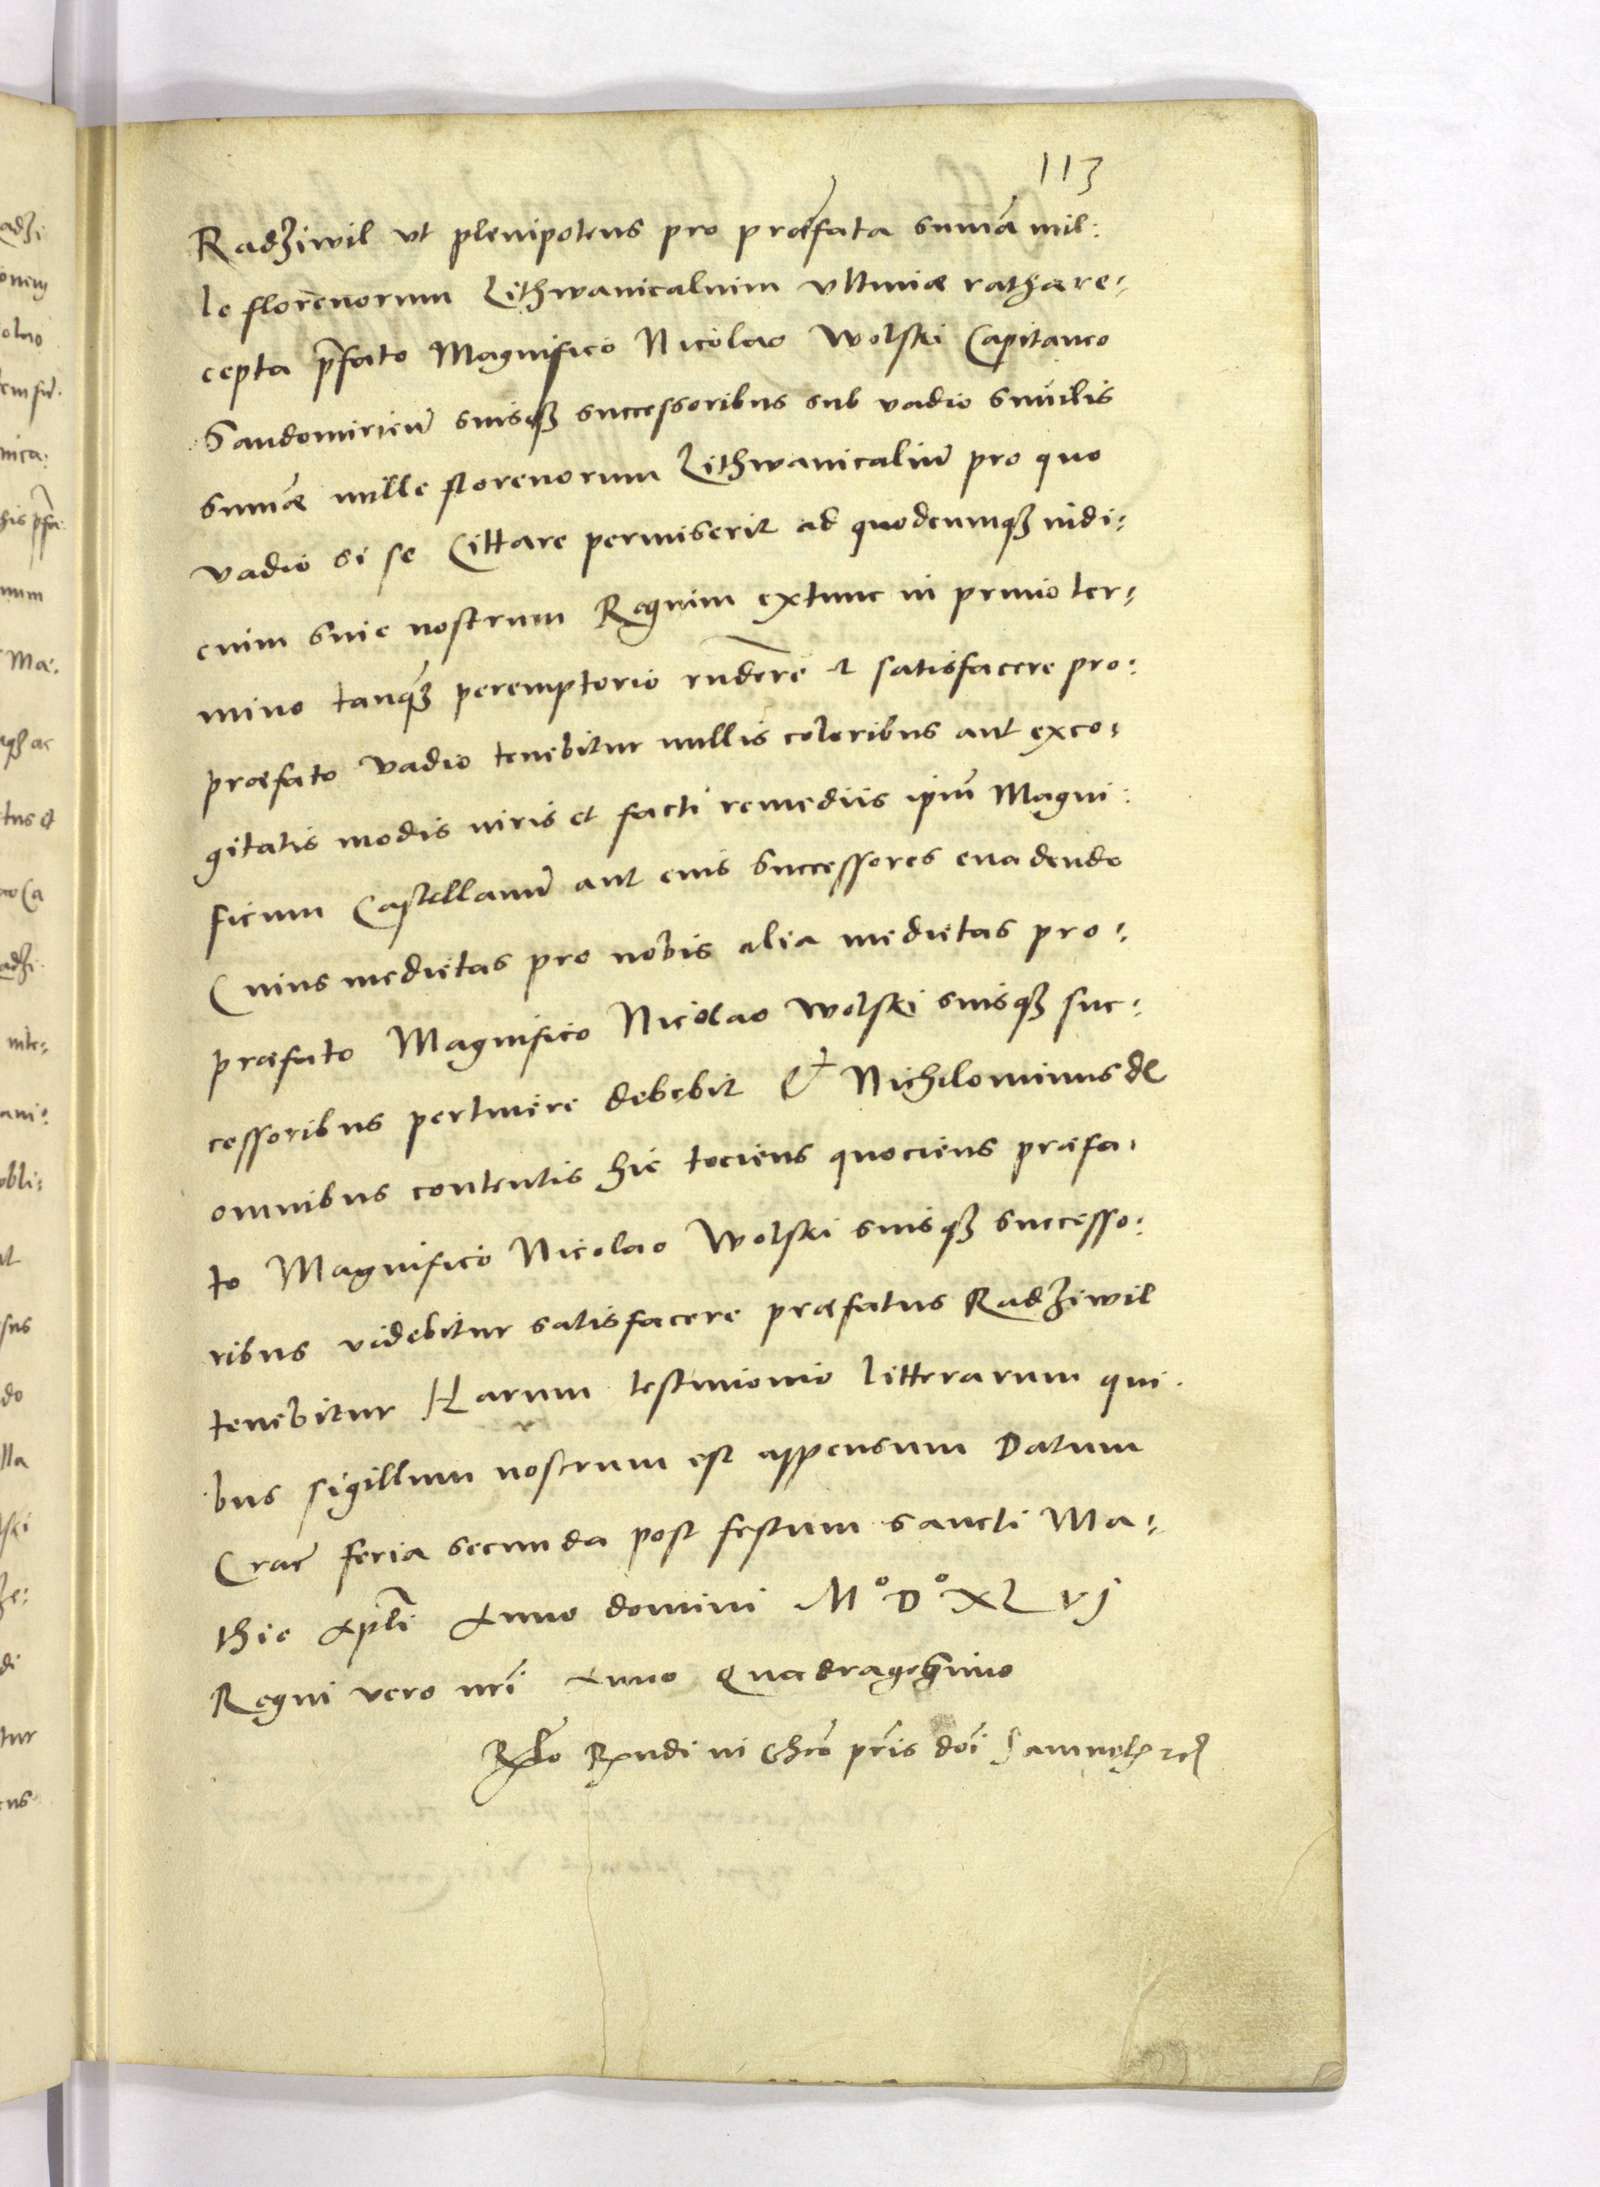 113
Radziwil vt plenipotens pro præfata sumā mil:
le florenorum Lithwanicaluim ultimæ rathæ re:
cepta pfato Magnifico Nicolao Wolski Capitaneo
Sandomirień suisqȝ successoribus sub vadio similis
sumæ mille florenorum Lithwanicaliū pro quo
vadio si se Cittare permiserit ad quodcumqȝ iudi:
cium siue nostrum Regnim extunc in primo ter:
mino tanqȝ peremptorio rñdere et satisfacere pro:
præfato vadio tenebitur nullis coloribus aut exco:
gitatis modis iuris et facti remediis ipm̄ Magni:
ficum Castellanū aut eius successores euadendo
Cuius medietas pro nobis alia medietas pro:
præfato Magnifico Nicolao Wolski suisqȝ suc:
cessoribus pertinere debebit Et Nichilominus de
omnibus contentis hic tociens quociens præfa:
to Magnifico Nicolao Wolski suisqȝ successo:
ribus videbitur satisfacere præfatus Radziwil
tenebitur Harum testimonio litterarum qui
bus sigillum nostrum est appensum Datum
Crac̄ feria secunda post festum sancti Ma:
thie Apli Anno domini M° D° XL vj
Regni vero nri Anno Quadragesimo
Rlo Rndi in Chro pris doi Samuelis